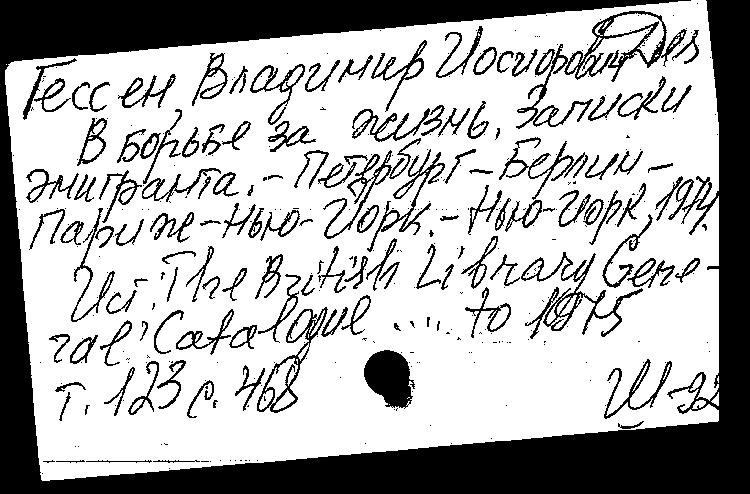 Гессен, Владимир Иосифович
В борьбе за жизнь. Записки
эмигранта. - Петербург - Берлин -
Париж - Нью-Йорк. - Нью-Йорк, 1974.
Ист.: The British Library Gene-
ral Catalogue ..... to 1975
т. 123 с. 468
Ш-92